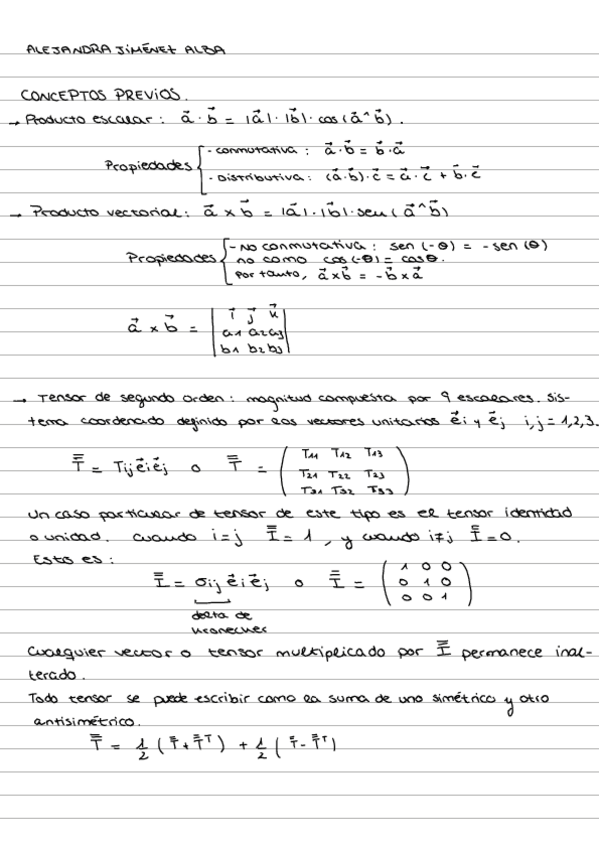 ALEJANDRA JIMÉNEZ ALBA
CONCEPTOS PREVIOS.
→ Producto escalar: a⃗ · b⃗ = |a⃗| · |b⃗| · cos(a⃗ ^ b⃗).
Propiedades { - conmutativa: a⃗ · b⃗ = b⃗ · a⃗
- Distributiva: (a⃗ · b⃗) · c⃗ = a⃗ · c⃗ + b⃗ · c⃗
→ Producto vectorial: a⃗ × b⃗ = |a⃗| · |b⃗| · sen(a⃗ ^ b⃗)
Propiedades { - No conmutativa: sen(-θ) = -sen(θ)
no como cos(-θ) = cosθ.
Por tanto, a⃗ × b⃗ = -b⃗ × a⃗
a⃗ × b⃗ = | i⃗ j⃗ k⃗ |
| a1 a2 a3 |
| b1 b2 b3 |
→ Tensor de segundo orden: magnitud compuesta por 9 escalares. Sis-
tema coordenado definido por los vectores unitarios e⃗i y e⃗j i,j = 1,2,3.
T̿ = Tij e⃗i e⃗j o T̿ = ( T11 T12 T13
T21 T22 T23
T31 T32 T33 )
Un caso particular de tensor de este tipo es el tensor identidad
o unidad. Cuando i=j I̿ = 1, y cuando i≠j I̿ = 0.
Esto es:
I̿ = σij e⃗i e⃗j o I̿ = ( 1 0 0
0 1 0
0 0 1 )
delta de
kronecker
Cualquier vector o tensor multiplicado por I̿ permanece inal-
terado.
Todo tensor se puede escribir como la suma de uno simétrico y otro
antisimétrico.
T̿ = 1/2 (T̿ + T̿ᵀ) + 1/2 (T̿ - T̿ᵀ)